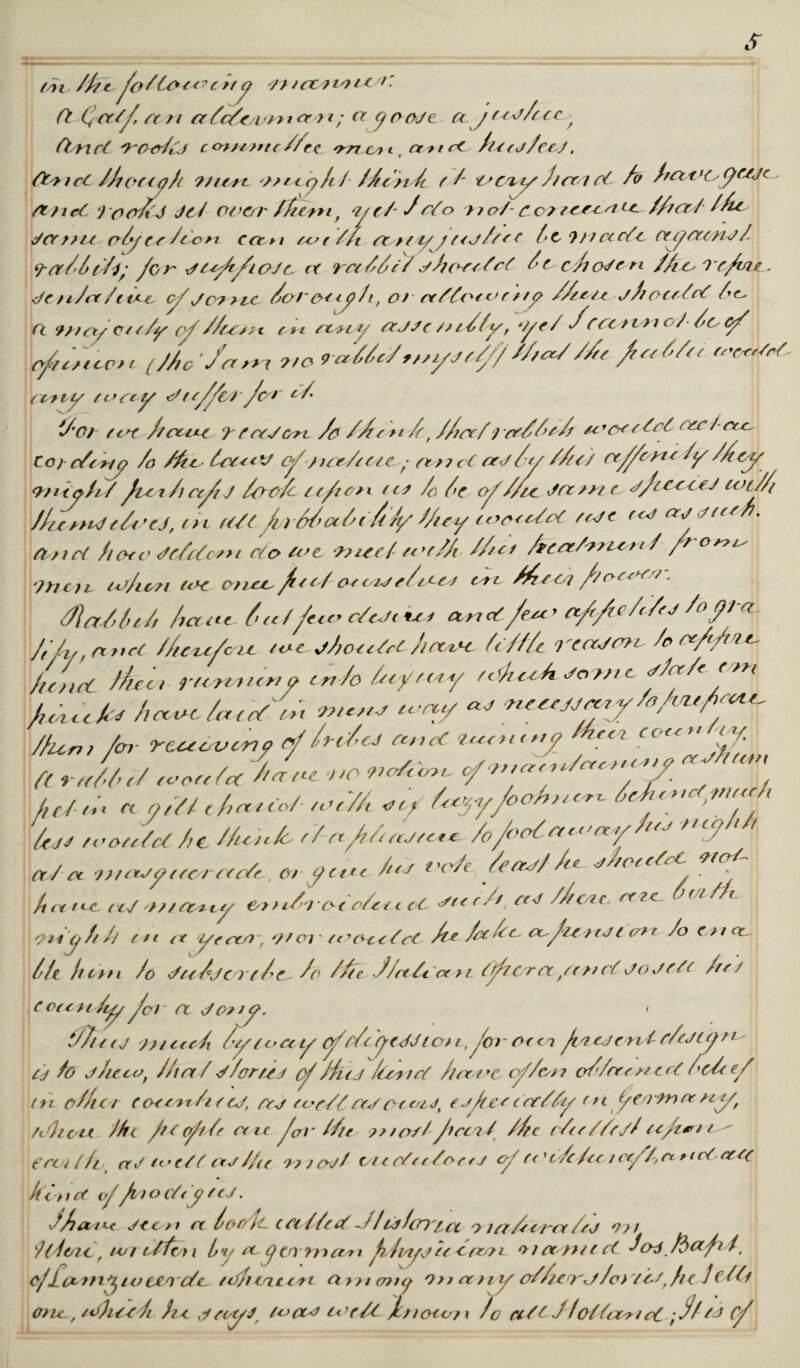 5
in the following manner:
A Calf, an alderman; a goose a justice,
And rooks committee men, and hustees.
And though men might think it very hard to have geese
And rooks set over them, yet I do not conceive that the
same objection can with any justice be made against
rabbits; for suppose a rabbit should be chosen the repre-
sentative of some borough, or allowing there should be
a majority of them in any assembly, yet I cannot be of
opinion (tho' I am no rabbit myself) that the public would
any way suffer for it.
For we have reason to think, that rabbits would act ac-
cording to the Laws of nature; and as by this affinity they
might perhaps look upon us to be of the same species with
themselves, in all probability they would use us as such.
And how seldom do we meet with this treatment from
men when we once put ourselves in their power.
Rabbits have but few desires and few appetites to gra-
tify, and therefore we should have little reason to appre-
hend their running into luxury which some state em
pricks have laid in mens way as necessary to prepare
them for receiving of bribes and ruining their country.
A rabbit would have no notion of maintaining a strum
pet in a gilt chariot with six footmen behind, much
less would he think it a pleasure to fool away his night
at a masquerade, or give his vote least he should not
have as many embroidered suits as there are births
night in a year, nor would he take a pension to ena
ble him to subscribe to the Italian Opera, and to sell his
country for a song.
Thus much by way of digression, for our present design
is to shew, that stories of this kind have often obtained belief
in other countries, as well as ours, especially in Germany,
which the people are for the most part the dullest upon
earth, as well as the most credulous of witchcraft, and all
kind of prodigies.
I have seen a book called Historia naturalis in
written by a german physician named Jos.
one, which he says, was well known to all Holland; It is of